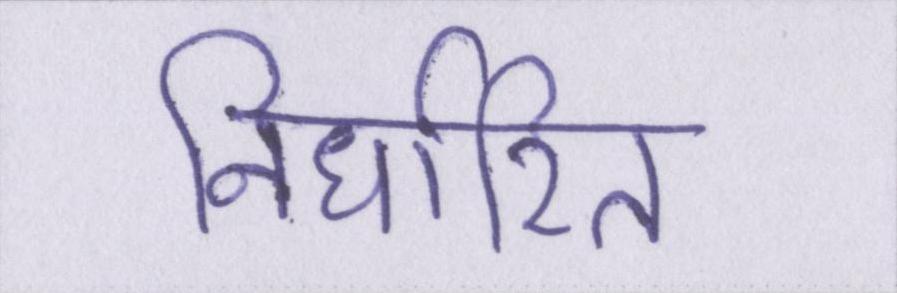 निर्धारित